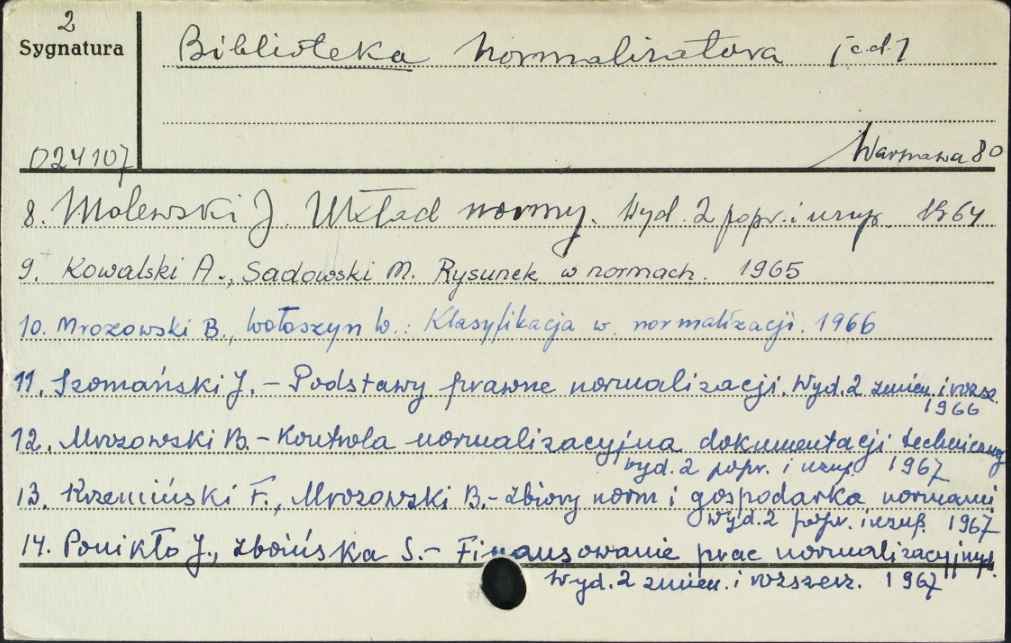 2
Sygnatura
Biblioteka Normalizatora [c.d.]
024107
Warszawa 80
8. Malewski J. Układ normy. Wyd. 2 popr. i uzup. 1964
9. Kowalski A., Sadowski M. Rysunek w normach. 1965
10. Mrozowski B., Wołoszyn W.: Klasyfikacja w normalizacji. 1966
11. Szomański J. - Podstawy prawne normalizacji. Wyd. 2 zmien. i rozsz.
1966
12. Mrozowski B. - Kontrola normalizacyjna dokumentacji technicznej
Wyd. 2 popr. i uzup. 1967
13. Krzemiński F., Mrozowski B. - Zbiory norm i gospodarka normami
Wyd. 2 popr. i uzup. 1967
14. Ponikło J., Zboińska S. - Finansowanie prac normalizacyjnych.
Wyd. 2 zmien. i rozszerz. 1967